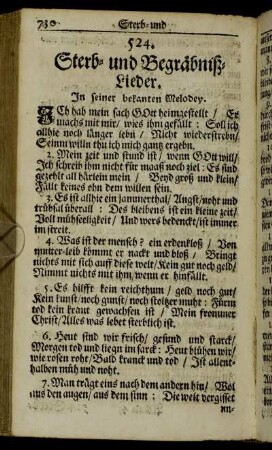 730 Sterb- und
524.
Sterb- und Begräbniß-
Lieder.
In seiner bekanten Melodey.
ICh hab mein sach GOtt heimgestellt / Er
machs mit mir / wies ihm gefällt: Soll ich
allhie noch länger lebn / Nicht wiederstrebn /
Seinm willn thu ich mich gantz ergebn.
2. Mein zeit und stund ist / wenn GOtt will /
Ich schreib ihm nicht für maaß noch ziel: Es sind
gezehlt all härlein mein / Beyd groß und klein /
Fällt keines ohn dem willen sein.
3. Es ist allhie ein jammerthal / Angst / noht und
trübsal überall: Des bleibens ist ein kleine zeit /
Voll mühseligkeit / Und wers bedenckt / ist immer
im streit.
4. Was ist der mensch? ein erdenkloß / Von
mutter-leib kömmt er nackt und bloß / Bringt
nichts mit sich auff diese welt / Kein gut noch geld /
Nimmt nichts mit ihm / wenn er hinfällt.
5. Es hilfft kein reichthum / geld noch gut /
Kein kunst / noch gunst / noch stoltzer muht: Fürm
tod kein kraut gewachsen ist / Mein frommer
Christ / Alles was lebet sterblich ist.
6. Heut sind wir frisch / gesund und starck /
Morgen tod und liegn im sarck: Heut blühen wir /
wie rosen roht / Bald kranck und tod / Ist allent-
halben müh und noht.
7. Man trägt eins nach dem andern hin / Wol
aus den augen / aus dem sinn: Die welt vergisset
un-